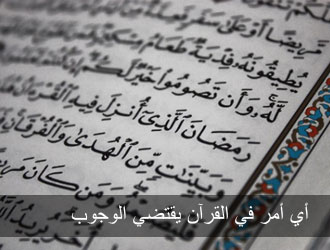 مَّرِيضًا أَوْ عَلَىٰ سَفَرٍ فَعِدَّةٌ
يُطِيقُونَهُۥ فِدْيَةٌ طَعَامُ مِسْكِينٍ
لَّهُۥ ۚ وَأَن تَصُومُوا۟ خَيْرٌ لَّكُمْ
رَمَضَانَ ٱلَّذِىٓ أُنزِلَ فِيهِ ٱلْقُرْءَانُ
وَبَيِّنَٰتٍ مِّنَ ٱلْهُدَىٰ وَٱلْفُرْقَانِ
وَمَن كَانَ
أي أمر في القرآن يقتضي الوجوب
يُرِيدُ ٱللَّهُ